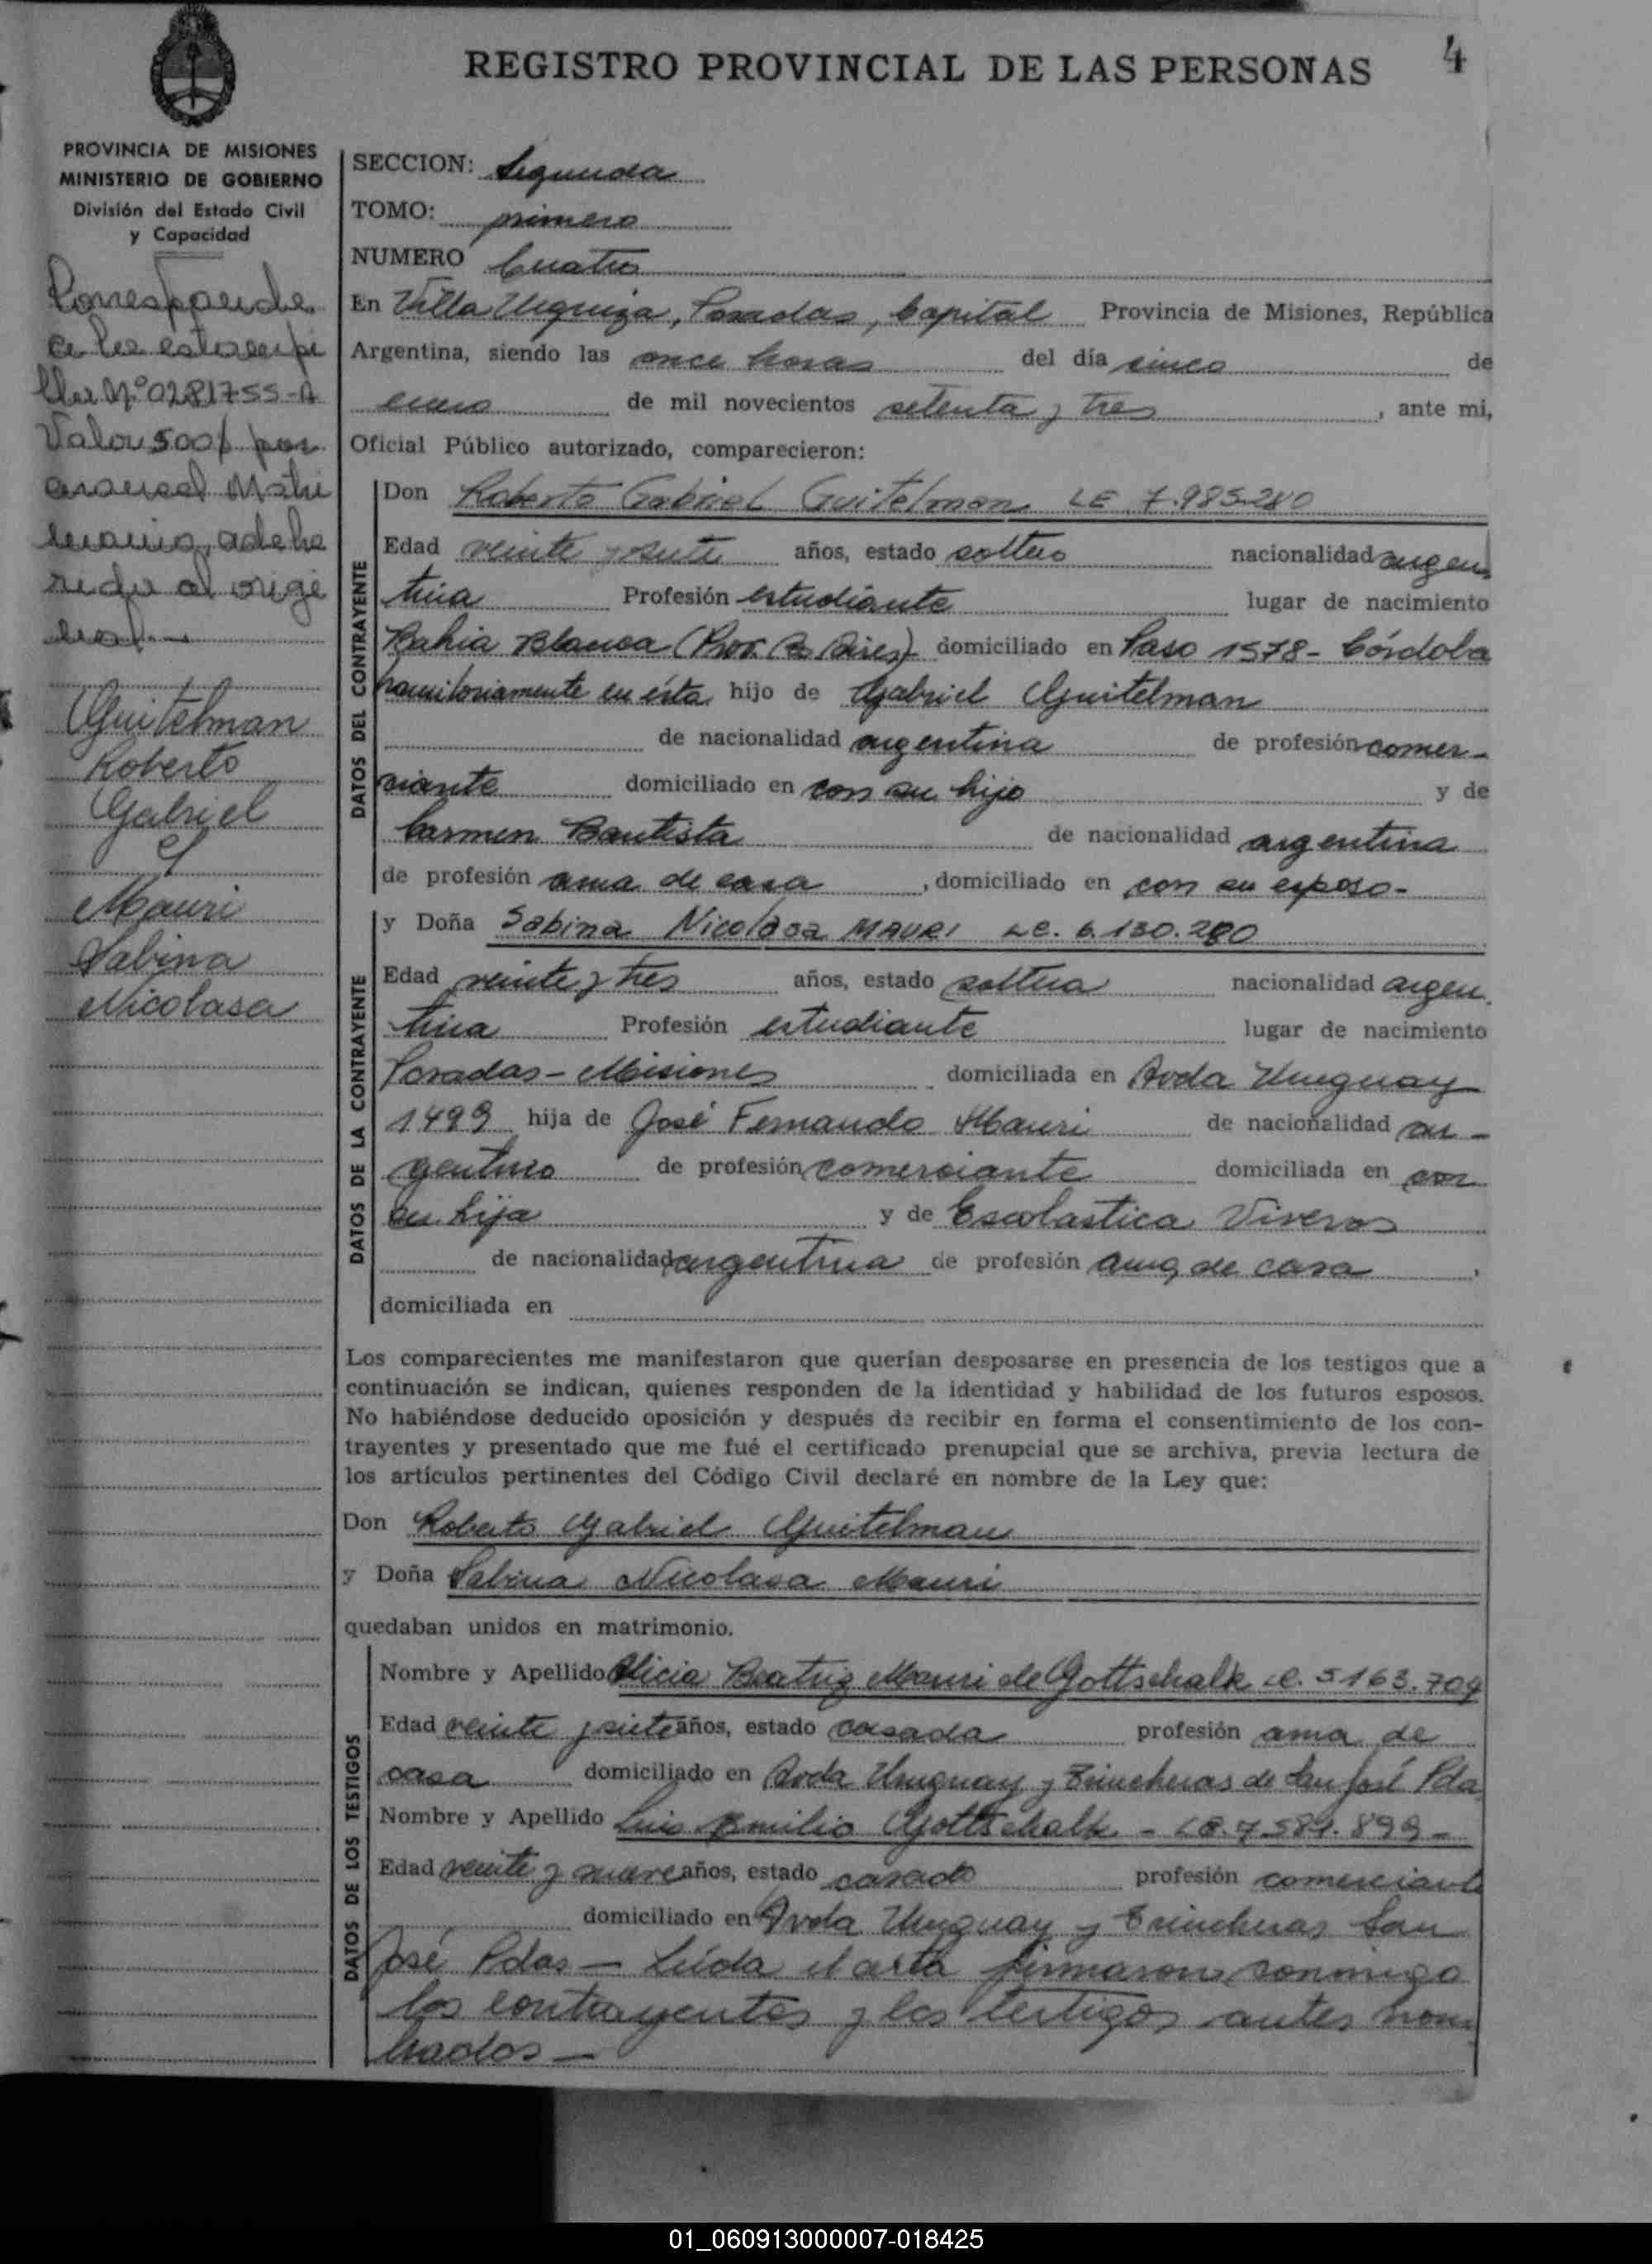 4
REGISTRO PROVINCIAL DE LAS PERSONAS
PROVINCIA DE MISIONES
MINISTERIO DE GOBIERNO
División del Estado Civil
y Capacidad
Corresponde
a la estampi
lla Nº 0281755-A
Valor 500$ por
arancel Matri
monio, adhe
rida al origi
nal.-
Guitelman
Roberto
Gabriel
y
Mauri
Sabina
Nicolasa
SECCION: Segunda
TOMO: primero
NUMERO Cuatro
En Villa Urquiza, Posadas, Capital Provincia de Misiones, República
Argentina, siendo las once horas del día cinco de
enero de mil novecientos setenta y tres, ante mi,
Oficial Público autorizado, comparecieron:
DATOS DEL CONTRAYENTE
Don Roberto Gabriel Guitelman LE 7.985.280
Edad veinte y siete años, estado soltero nacionalidad argen
tina Profesión estudiante lugar de nacimiento
Bahia Blanca (Prov. Bs Aires) domiciliado en Paso 1578- Córdoba
transitoriamente en ésta hijo de Gabriel Guitelman
de nacionalidad argentina de profesión comer-
ciante domiciliado en con su hijo y de
Carmen Bautista de nacionalidad argentina
de profesión ama de casa, domiciliado en con su esposo-
DATOS DE LA CONTRAYENTE
y Doña Sabina Nicolasa MAURI LC. 6.130.280
Edad veinte y tres años, estado soltera nacionalidad argen
tina Profesión estudiante lugar de nacimiento
Posadas-Misiones domiciliada en Avda Uruguay
1499 hija de José Fernando Mauri de nacionalidad ar-
gentino de profesión comerciante domiciliada en con
su hija y de Escolastica Viveros
de nacionalidad argentina de profesión ama de casa,
domiciliada en
Los comparecientes me manifestaron que querían desposarse en presencia de los testigos que a
continuación se indican, quienes responden de la identidad y habilidad de los futuros esposos.
No habiéndose deducido oposición y después de recibir en forma el consentimiento de los con-
trayentes y presentado que me fué el certificado prenupcial que se archiva, previa lectura de
los artículos pertinentes del Código Civil declaré en nombre de la Ley que:
Don Roberto Gabriel Guitelman
y Doña Sabina Nicolasa Mauri
quedaban unidos en matrimonio.
DATOS DE LOS TESTIGOS
Nombre y Apellido Alicia Beatriz Mauri de Gottschalk LC. 5163.704
Edad veinte y siete años, estado casada profesión ama de
casa domiciliado en Avda Uruguay y Trincheras de San José Pda
Nombre y Apellido Luis Emilio Gottschalk - LE. 7.589.899-
Edad veinte y nueve años, estado casado profesión comerciante
domiciliado en Avda Uruguay y Trincheras San
José Pdas- Leída el acta firmaron conmigo
los contrayentes y los testigos antes nom
brados-
01_060913000007-018425